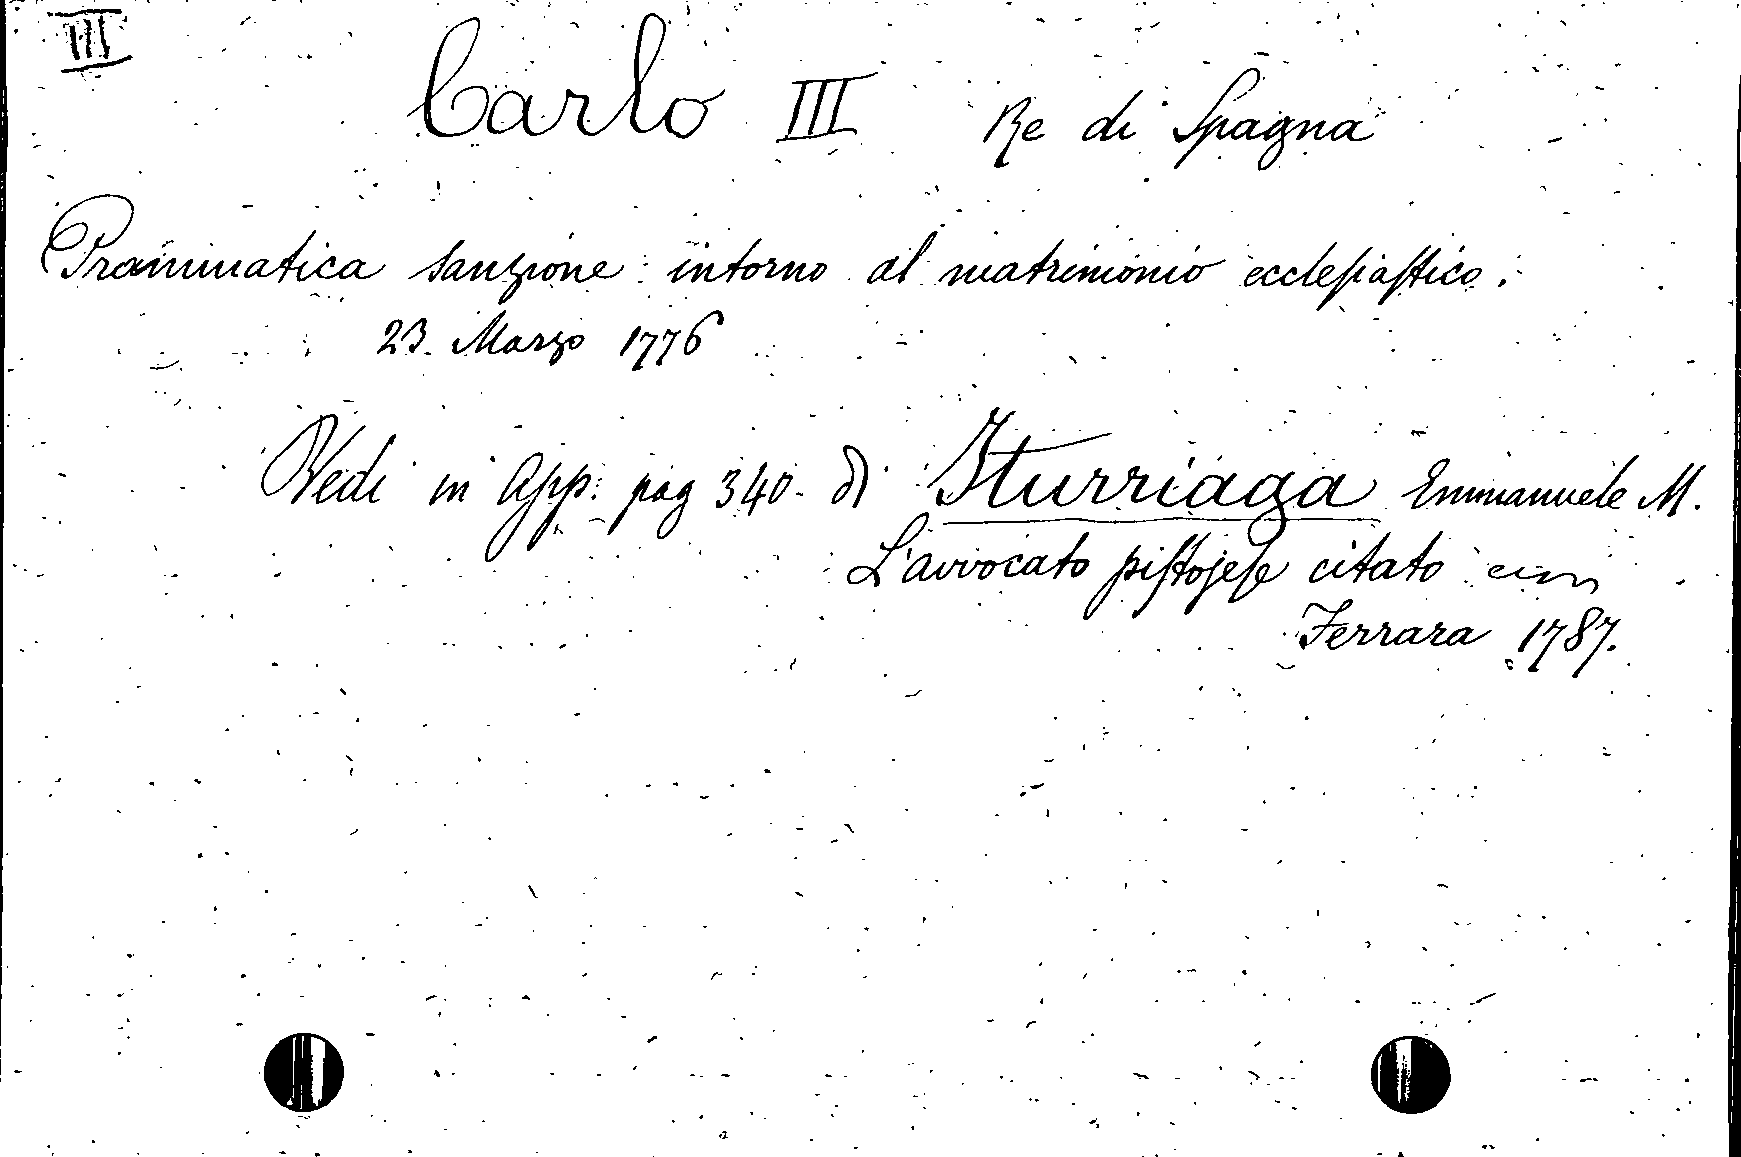 III
Carlo III Re di Spagna
Prammatica sanzione intorno al matrimonio ecclesiastico.
23. Marzo 1776
Vedi in App. pag 340. di Iturriaga Emmanuele M.
L'avvocato pistojese citato
Ferrara 1787.